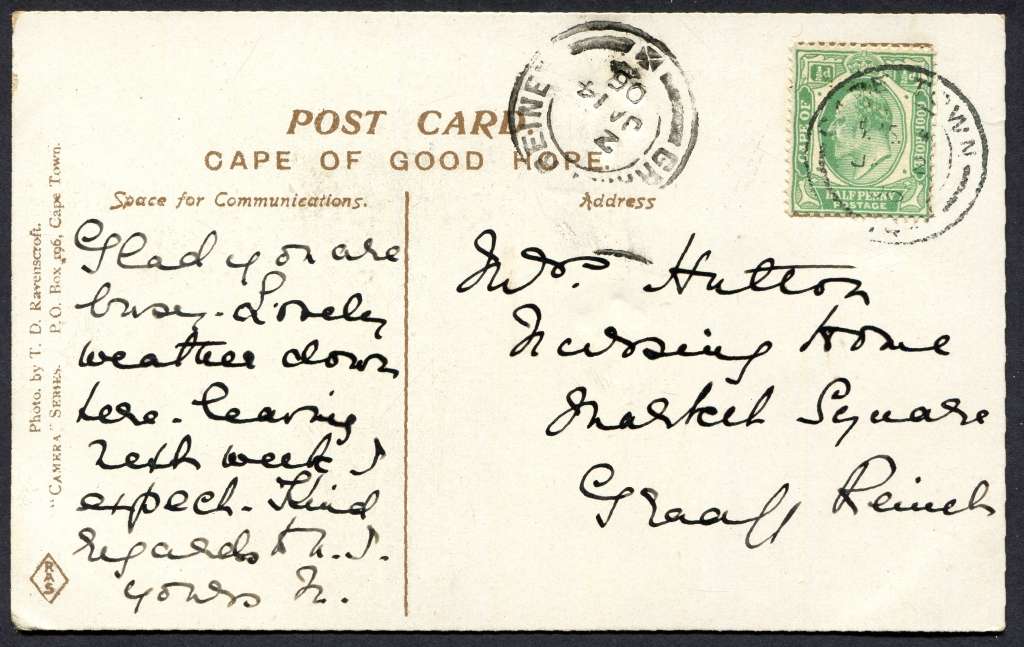 POST CARD
CAPE OF GOOD HOPE.
Space for Communications.
Address
Glad you are
busy. Lovely
weather down
here. leaving
next week I
expect. Kind
regards to N.J.
yours N.
Mrs. Hutton
Nursing Home
Market Square
Graaff Reinet
Photo. by T. D. Ravenscroft.
"CAMERA" SERIES. P.O. Box 196, Cape Town.
RAS
CAPE OF
GOOD HOPE
HALF PENNY
POSTAGE
REINET
TOWN